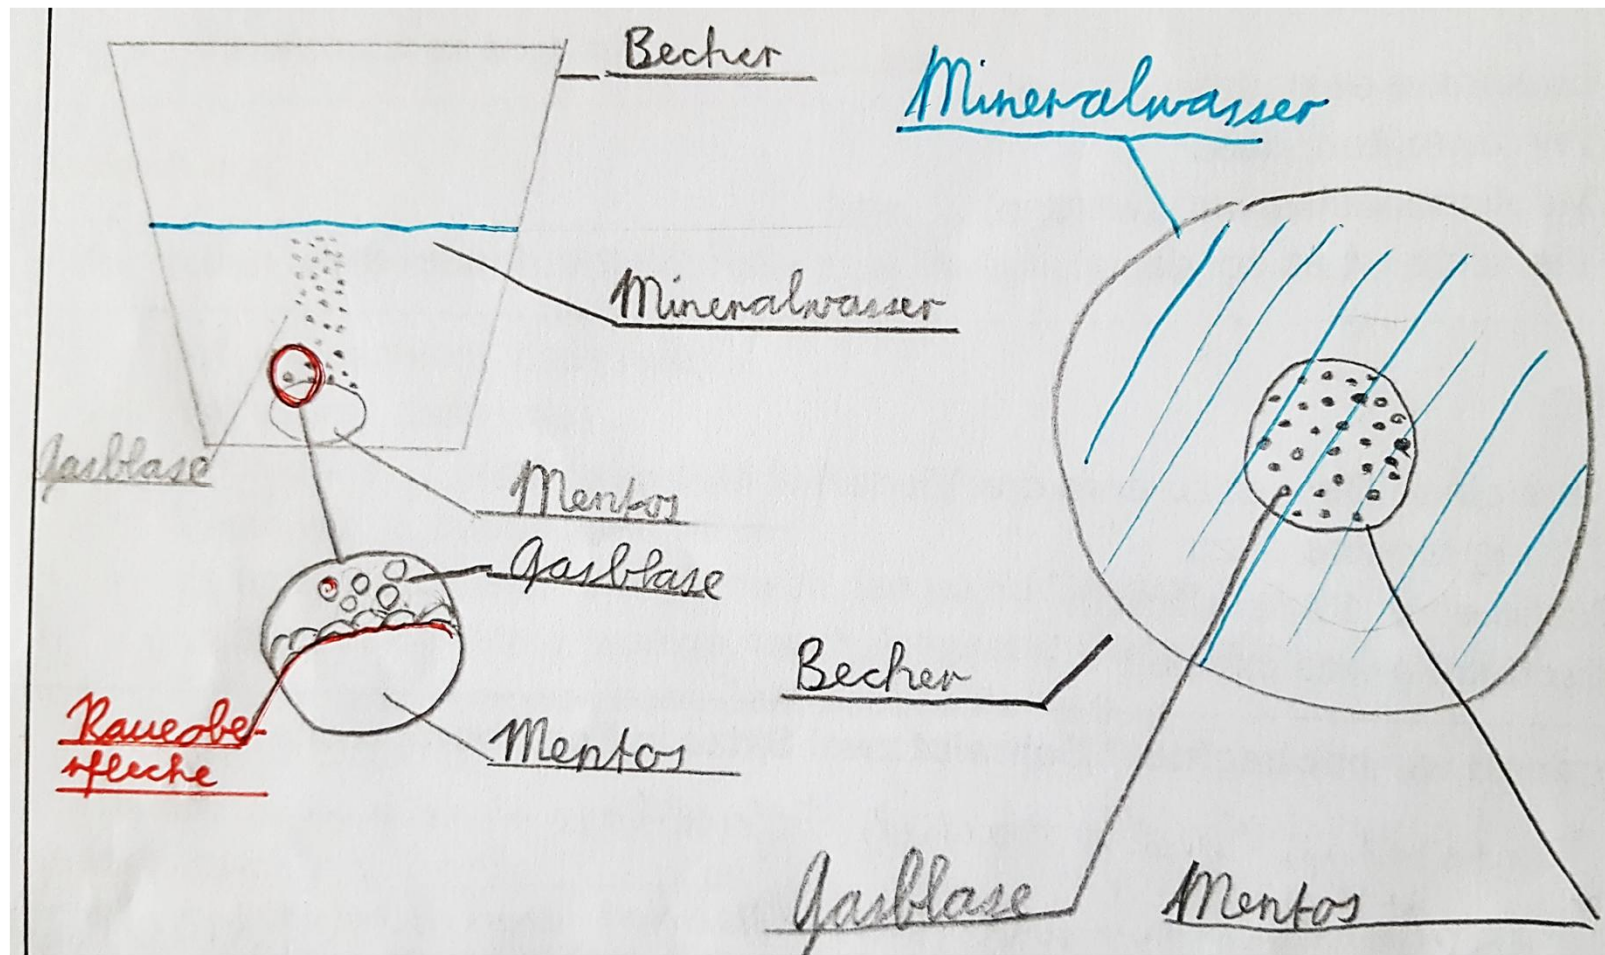 Becher
Mineralwasser
Mineralwasser
Gasblase
Mentos
Gasblase
Becher
Raueobe-
rfleche
Mentos
Gasblase
Mentos